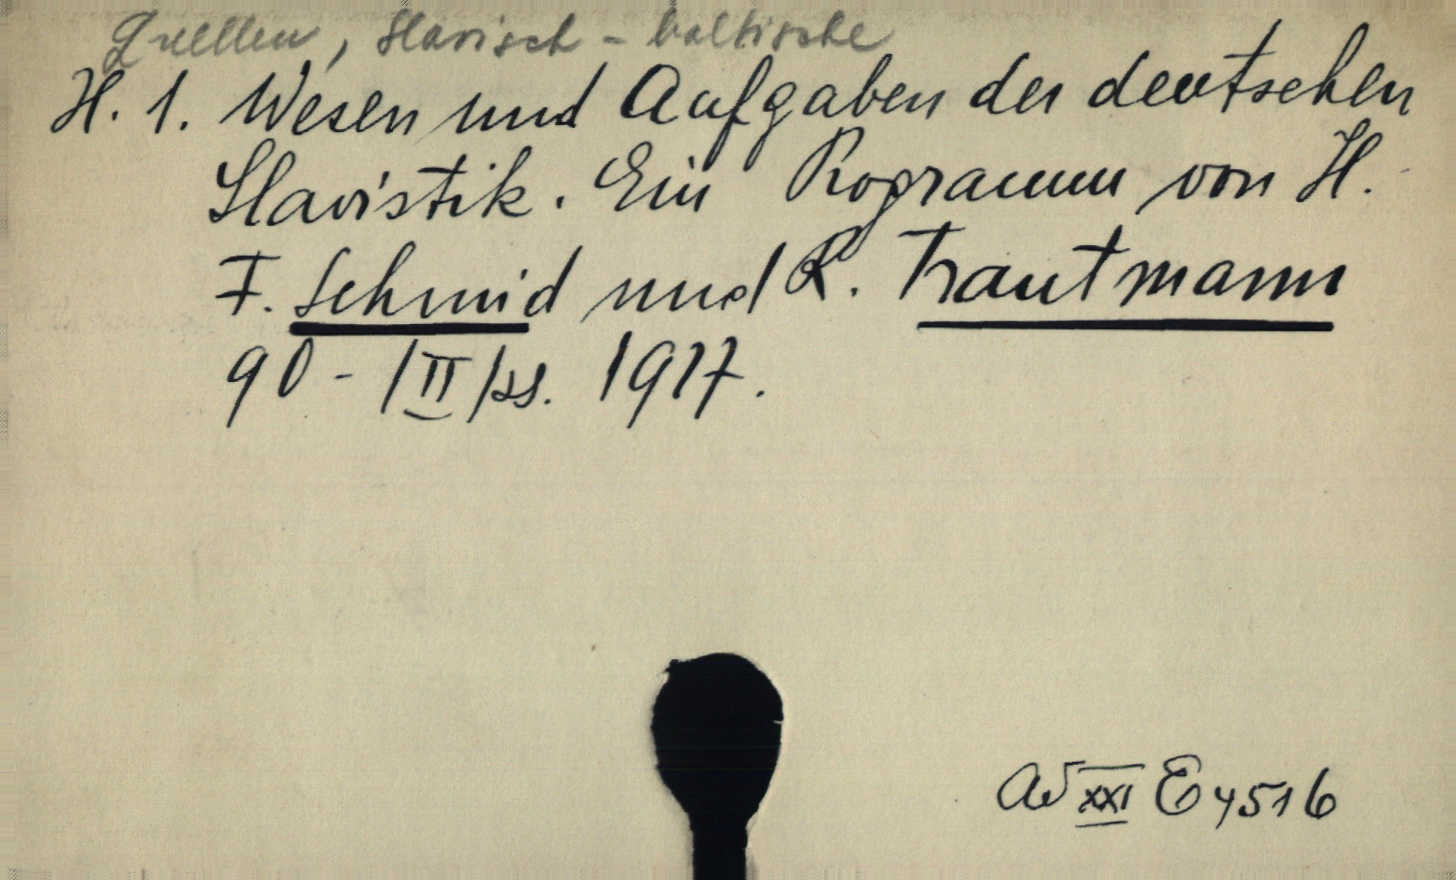 Quellen, slavisch-baltische
H. 1. Wesen und Aufgaben der deutschen
Slavistik. Ein Programm von H.
F. Schmid und R. Trautmann
90 - /II/ss. 1917.
Av XXI E 4516